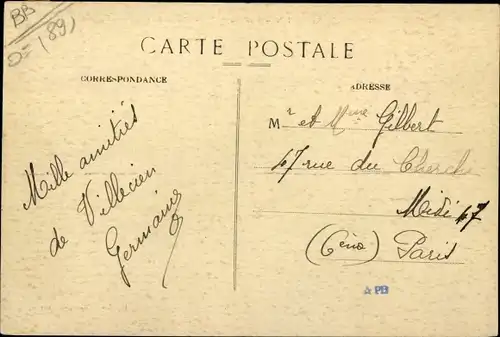 BB
D= (89)
CARTE POSTALE
CORRESPONDANCE
Mille amitiés
de Villecien
Germaine
ADRESSE
Mr et Mme Gilbert
47 rue du Cherch
Midi 47
Paris
PB